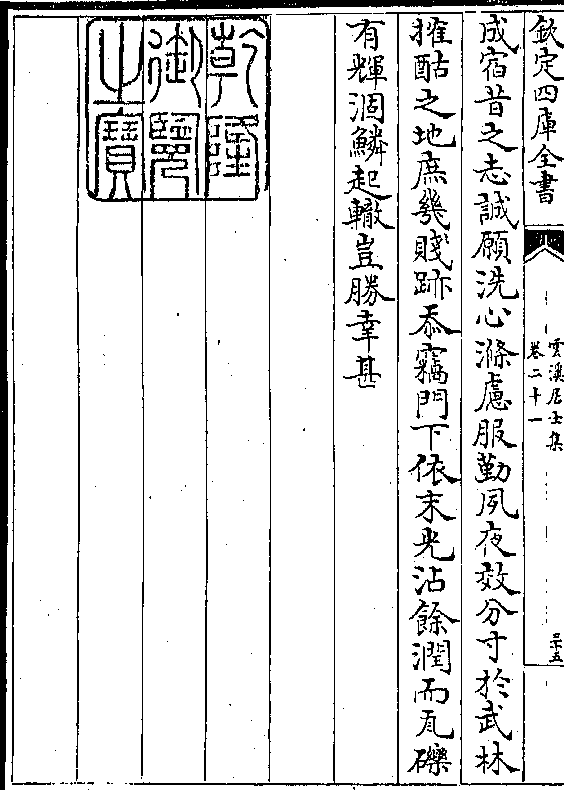 欽定四庫全書
雲溪居士集
卷二十一
三十五
成宿昔之志誠願洗心滌慮服勤夙夜效分寸於武林
搉酤之地庶幾賤跡忝竊門下依末光沾餘潤而瓦礫
有輝涸鱗起轍豈勝幸甚
乾隆
御覽
之寶